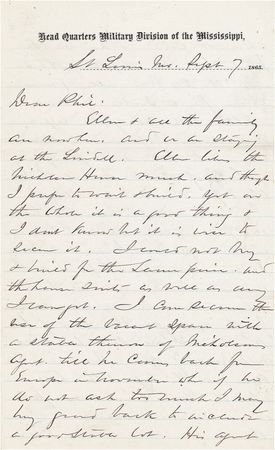 Head Quarters Military Division of the Mississippi,
St Louis Mo, Sept 7 1865.
Dear Phil:
Ellen & all the family
are now here, and we are staying
at the Lindell. Ellen likes the
Nicholson House much, and though
I prefer to wait & build, yet on
the whole it is a good thing &
I dont know but it is wise to
secure it. I could not buy
& build for the same price, and
the house suits as well as any
I can get. I can secure the
use of the vacant space with
a stable thereon of Nicholsons
Agt till he comes back from
Europe in November when if he
do not ask too much I may
buy ground back to include
a good stable lot. His agent